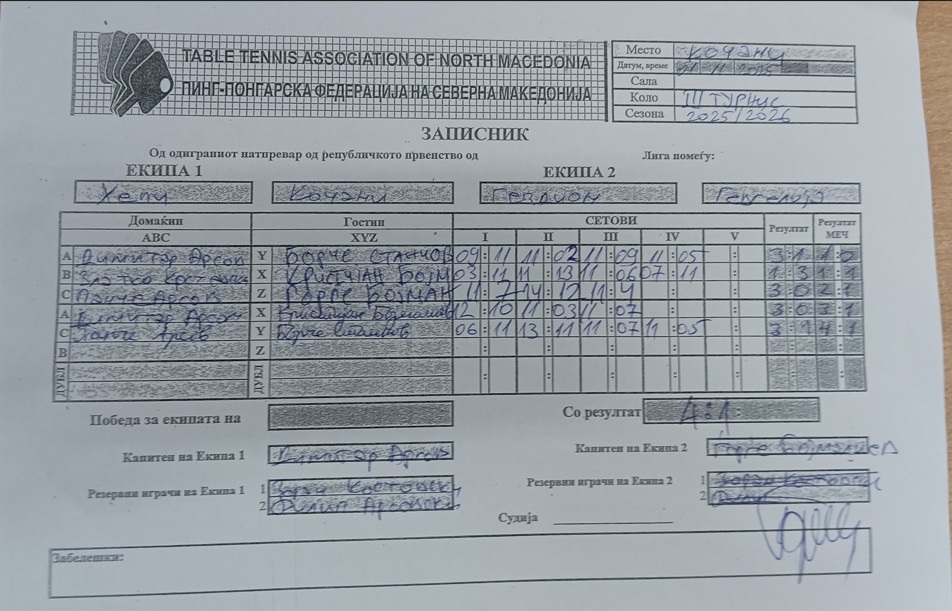 TABLE TENNIS ASSOCIATION OF NORTH MACEDONIA
ПИНГ-ПОНГАРСКА ФЕДЕРАЦИЈА НА СЕВЕРНА МАКЕДОНИЈА
Место Кочани
Датум, време 2025
Сала
Коло III ТУРНИС
Сезона 2025/2026
ЗАПИСНИК
Од одиграниот натпревар од републичкото првенство од Лига помеѓу:
ЕКИПА 1 ЕКИПА 2
Кочани Гевгелија
Домаќин Гости СЕТОВИ Резултат Резултат МЕЧ
ABC XYZ I II III IV V
A Димитар Арсов Y БОРЧЕ 09:11 11:02 11:09 11:05 3:1 1:0
B Златко X КРИСТИЈАН БОЈМ 03:11 11:13 11:06 07:11 1:3 1:1
C Арсов Z ЃОРЃЕ БОЈМАН 11:7 14:12 11:4 3:0 2:1
A Димитар Арсов X Кристијан 12:10 11:03 11:07 3:0 3:1
C Y Борче 06:11 13:11 11:07 11:05 3:1 4:1
B Z
ДУБЛ ДУБЛ
Победа за екипата на Со резултат 4:1
Капитен на Екипа 1 Димитар Арсов Капитен на Екипа 2 Ѓорѓе
Резервни играчи на Екипа 1 1 Костовски Резервни играчи на Екипа 2 1
2 Филип Арсовски 2
Судија
Забелешки: